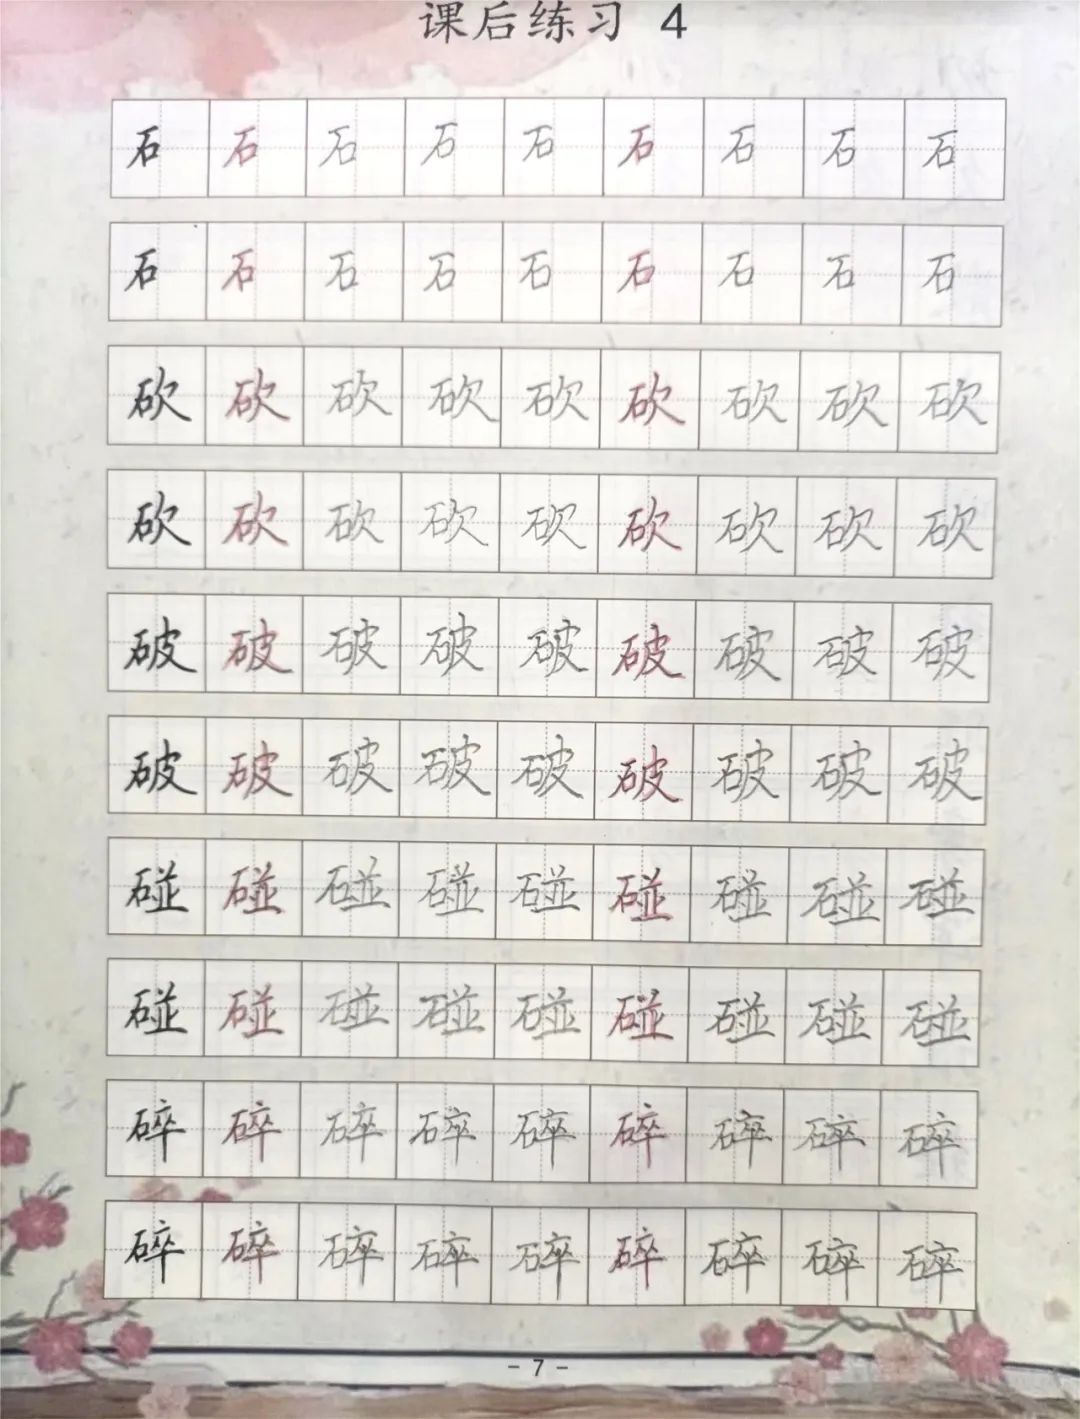 课后练习 4
石 石 石 石 石 石 石 石 石
石 石 石 石 石 石 石 石 石
砍 砍 砍 砍 砍 砍 砍 砍 砍
砍 砍 砍 砍 砍 砍 砍 砍 砍
破 破 破 破 破 破 破 破 破
破 破 破 破 破 破 破 破 破
碰 碰 碰 碰 碰 碰 碰 碰 碰
碰 碰 碰 碰 碰 碰 碰 碰 碰
碎 碎 碎 碎 碎 碎 碎 碎 碎
碎 碎 碎 碎 碎 碎 碎 碎 碎
- 7 -